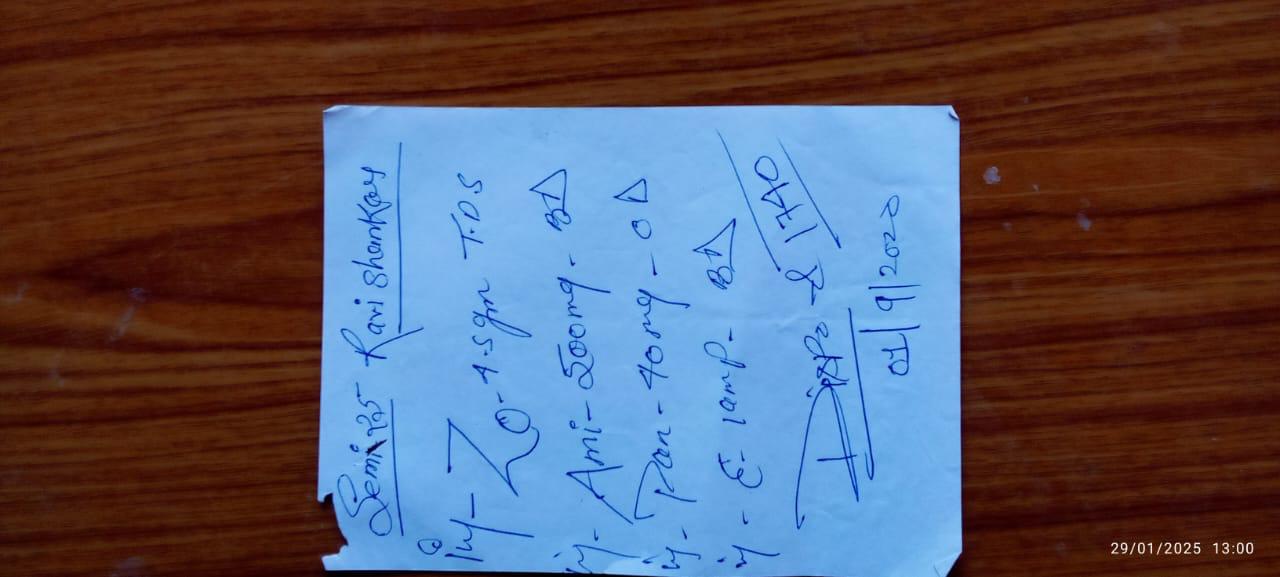 Semi 25 Ravi Shankar
① Inj - Zo - 4.5gm T.D.S
inj - Ami - 500mg - BD
inj - Pan - 40mg - OD
inj - E - 1amp - BD
& 1740
01/9/2020
29/01/2025 13:00